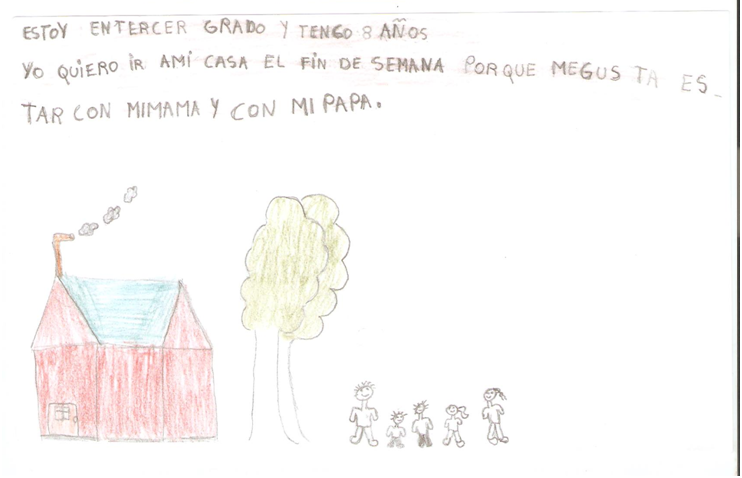 ESTOY ENTERCER GRADO Y TENGO 8 AÑOS
YO QUIERO IR AMI CASA EL FIN DE SEMANA PORQUE MEGUSTA ES_
TAR CON MIMAMA Y CON MI PAPA.